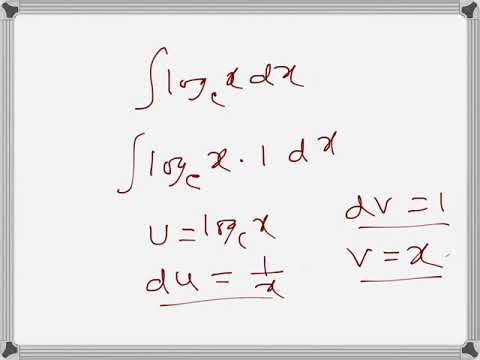 ∫ log_e x dx
∫ log_e x · 1 dx
u = log_e x
du = 1/x
dv = 1
v = x